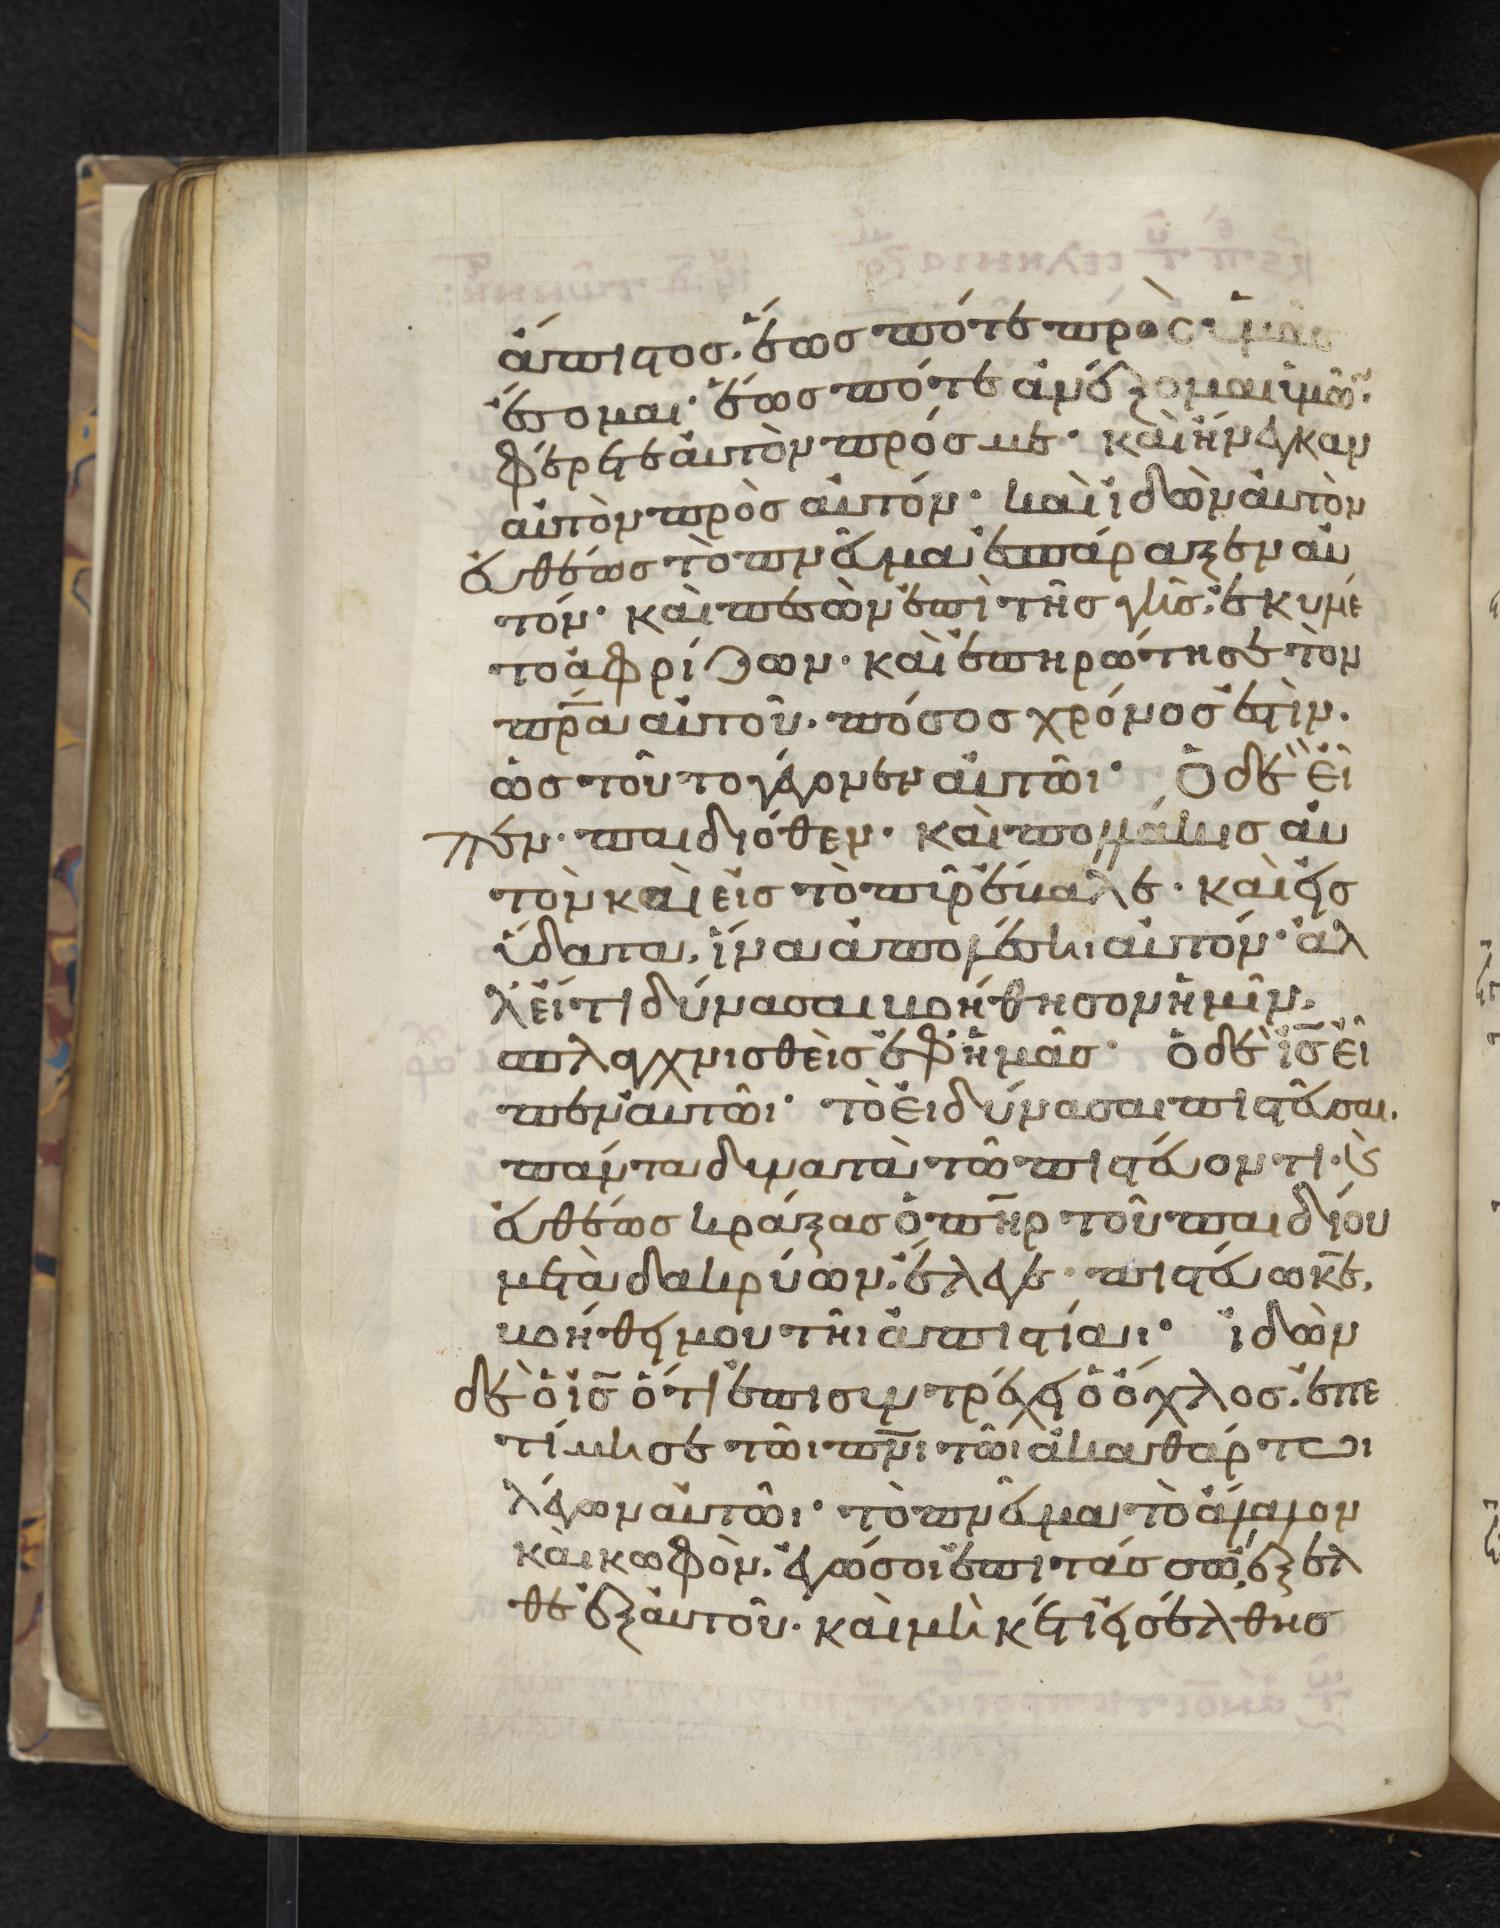 ἄπιστος. ἕως πότε πρὸς ὑμᾶς
ἔσομαι· ἕως πότε ἀνέξομαι ὑμῶν·
φέρετε αὐτὸν πρός με· καὶ ἤνεγκαν
αὐτὸν πρὸς αὐτόν· καὶ ἰδὼν αὐτὸν
εὐθέως τὸ πνεῦμα ἐσπάραξεν αὐ
τόν· καὶ πεσὼν ἐπὶ τῆς γῆς, ἐκυλίε
το ἀφρίζων· καὶ ἐπηρώτησε τὸν
πρ̅α αὐτοῦ· πόσος χρόνος ἐστὶν.
ὡς τοῦτο γέγονεν αὐτῶι· Ὁ δὲ εἶ
πεν· παιδιόθεν· καὶ πολλάκις αὐ
τὸν καὶ εἰς τὸ πῦρ ἔβαλε· καὶ εἰς
ὕδατα, ἵνα ἀπολέσηι αὐτόν· ἀλ
λ' εἴ τι δύνασαι βοήθησον ἡμῖν,
σπλαγχνισθεὶς ἐφ' ἡμᾶς· Ὁ δὲ ι̅ς̅ εἶ
πεν αὐτῶι· τὸ εἰ δύνασαι πιστεῦσαι.
πάντα δυνατὰ τῶ πιστεύοντι· κ(αὶ)
εὐθέως κράξας ὁ π̅η̅ρ τοῦ παιδίου
μετὰ δακρύων, ἔλεγε· πιστεύω κ̅ε̅,
βοήθει μου τῆι ἀπιστίαι· ἰδὼν
δὲ ὁ ι̅ς̅ ὅτι ἐπισυντρέχει ὁ ὄχλος. ἐπε
τίμησε τῶι π̅ν̅ι τῶι ἀκαθάρτωι
λέγων αὐτῶι· τὸ πνεῦμα τὸ ἄλαλον
καὶ κωφὸν. ἐγώ σοι ἐπιτάσσω, ἔξελ
θε ἐξ αὐτοῦ. καὶ μὴκέτι εἰσέλθης